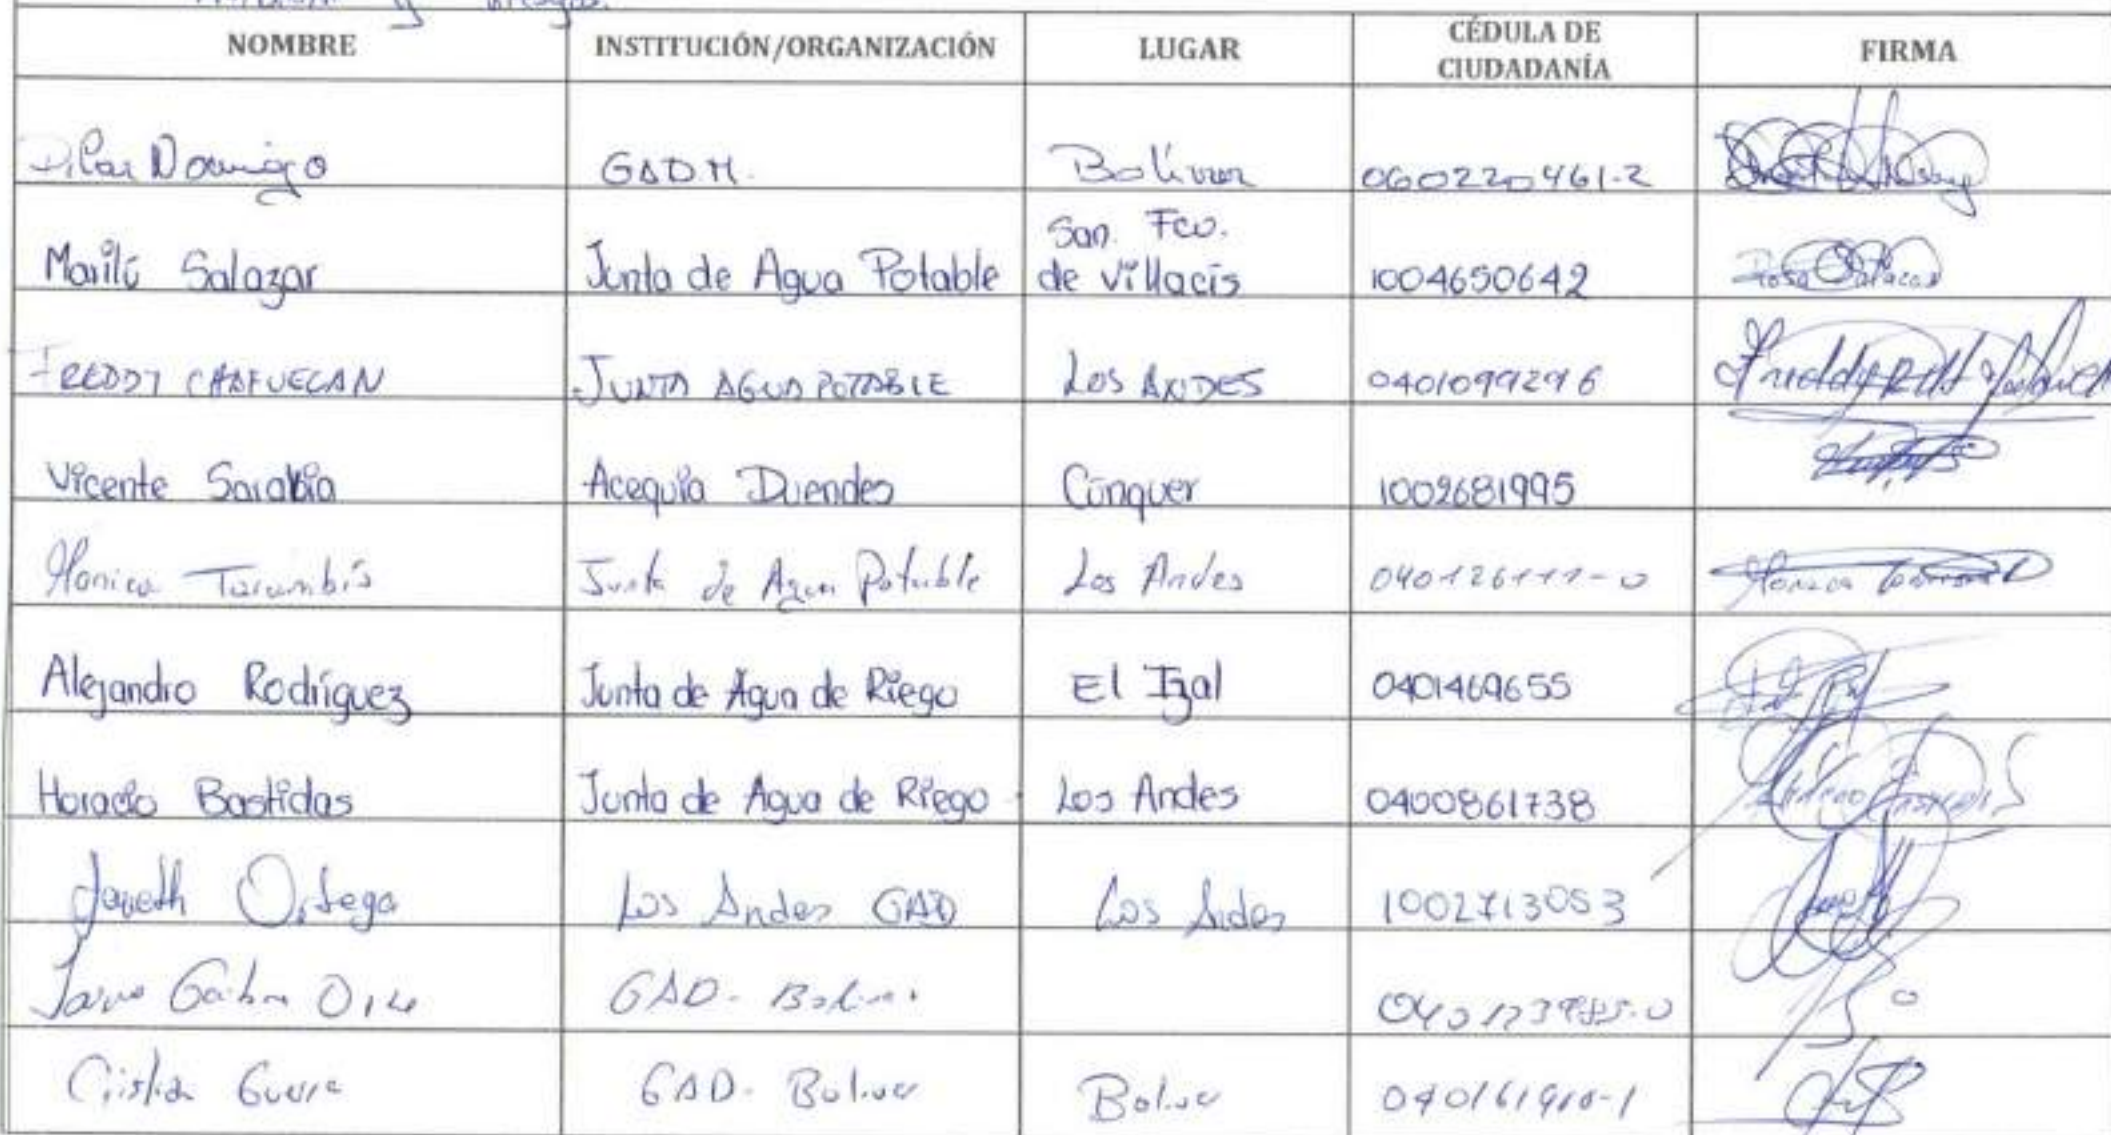 y
NOMBRE INSTITUCIÓN/ORGANIZACIÓN LUGAR CÉDULA DE CIUDADANÍA FIRMA
Pilar Domingo GADM. Bolívar 060220461-2
Marilú Salazar Junta de Agua Potable San. Fco. de Villacís 1004650642 Rosa
FREDDY JUNTA AGUA POTABLE LOS ANDES 0401099296 Freddy
Vicente Sarabia Acequia Duendes Cúnquer 1002681995
Monica Tarambís Junta de Agua Potable Los Andes 040126111-0 Monica
Alejandro Rodríguez Junta de Agua de Riego El Izal 0401469655
Horacio Bastidas Junta de Agua de Riego Los Andes 0400861738
Janeth Ortega Los Andes GAD Los Andes 1002713053
GAD-Bolívar
Cristian Guerra GAD-Bolivar Bolivar